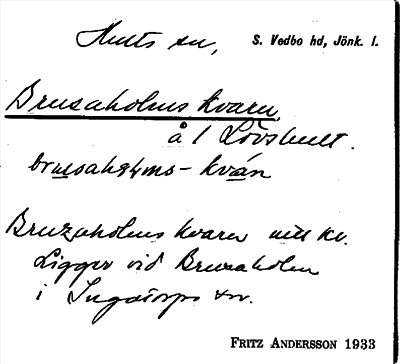 Hults sn, S. Vedbo hd, Jönk. l.
Brusaholms kvarn
å 1 Lövshult.
brusahɷlms-kván
Bruzaholms kvarn
Ligger vid Bruzaholm
i Ingatorps sn.
FRITZ ANDERSSON 1933